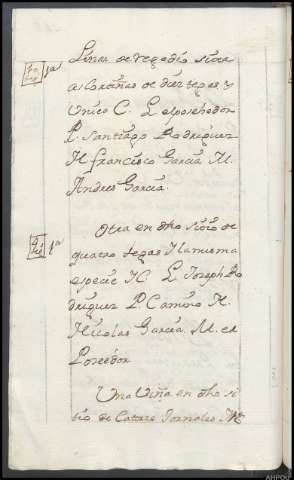 Linar de regadio sito
a Cortinas de diez fegas y
Unico C. L. el poseehedor
P. Santiago Rodriguez
N francisco Garcia M.
Andres Garcia
1ª
Otra en dho sitio de
quatro fegas y la misma
especie N. L. Joseph Ro
driguez P. Camino N.
Nicolas Garcia M. el
Poseedor
1ª
Una Viña en dho si
tio de Catore Jornales
AHPOU